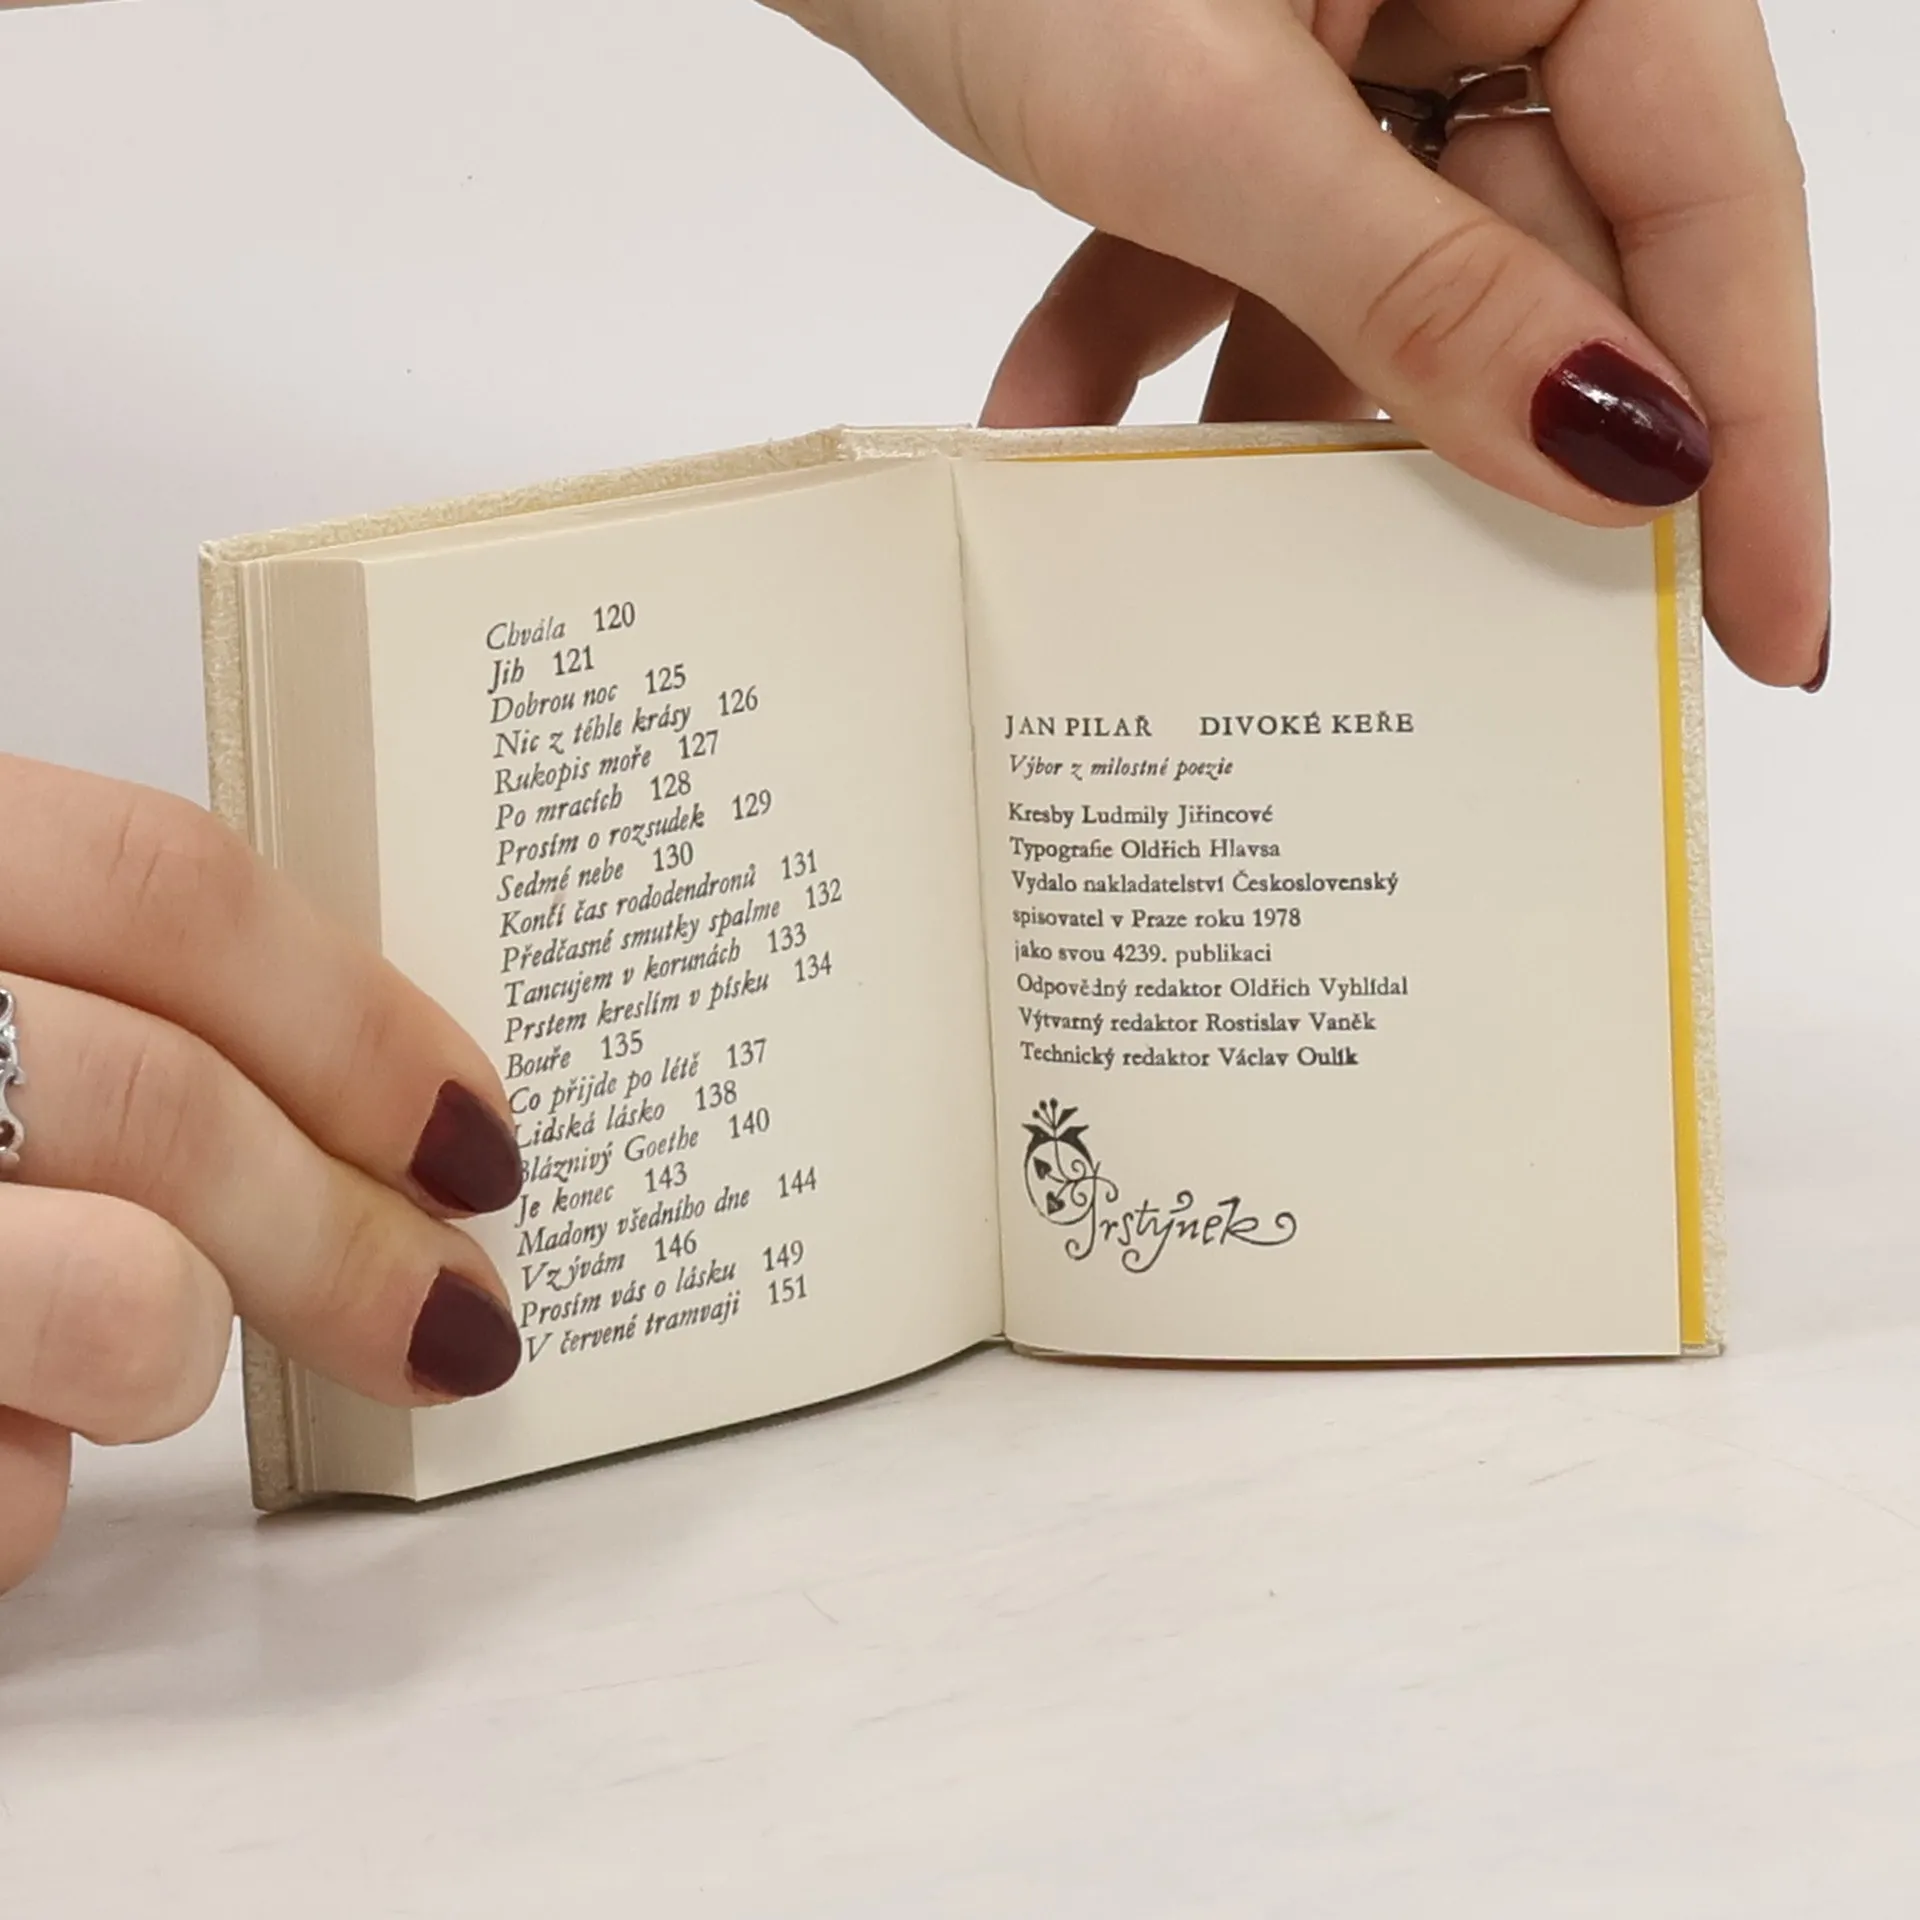 Chvála 120
Jih 121
Dobrou noc 125
Nic z téhle krásy 126
Rukopis moře 127
Po mracích 128
Prosím o rozsudek 129
Sedmé nebe 130
Končí čas rododendronů 131
Předčasné smutky spalme 132
Tancujem v korunách 133
Prstem kreslím v písku 134
Bouře 135
Co přijde po létě 137
Lidská lásko 138
Bláznivý Goethe 140
Je konec 143
Madony všedního dne 144
Vzývám 146
Prosím vás o lásku 149
V červené tramvaji 151
JAN PILAŘ DIVOKÉ KEŘE
Výbor z milostné poezie
Kresby Ludmily Jiřincové
Typografie Oldřich Hlavsa
Vydalo nakladatelství Československý
spisovatel v Praze roku 1978
jako svou 4239. publikaci
Odpovědný redaktor Oldřich Vyhlídal
Výtvarný redaktor Rostislav Vaněk
Technický redaktor Václav Oulík
Prstýnek